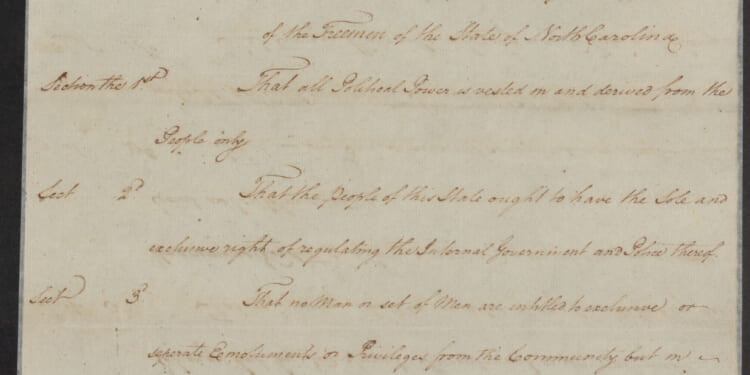 of the Freemen of the State of North Carolina
Section the 1st That all Political Power is vested in and derived from the
People only
Sect 2d That the People of this State ought to have the Sole and
exclusive right of regulating the Internal Government and Police thereof.
Sect 3d That no Man or set of Men are entitled to exclusive or
seperate Emoluments or Privileges from the Community but in